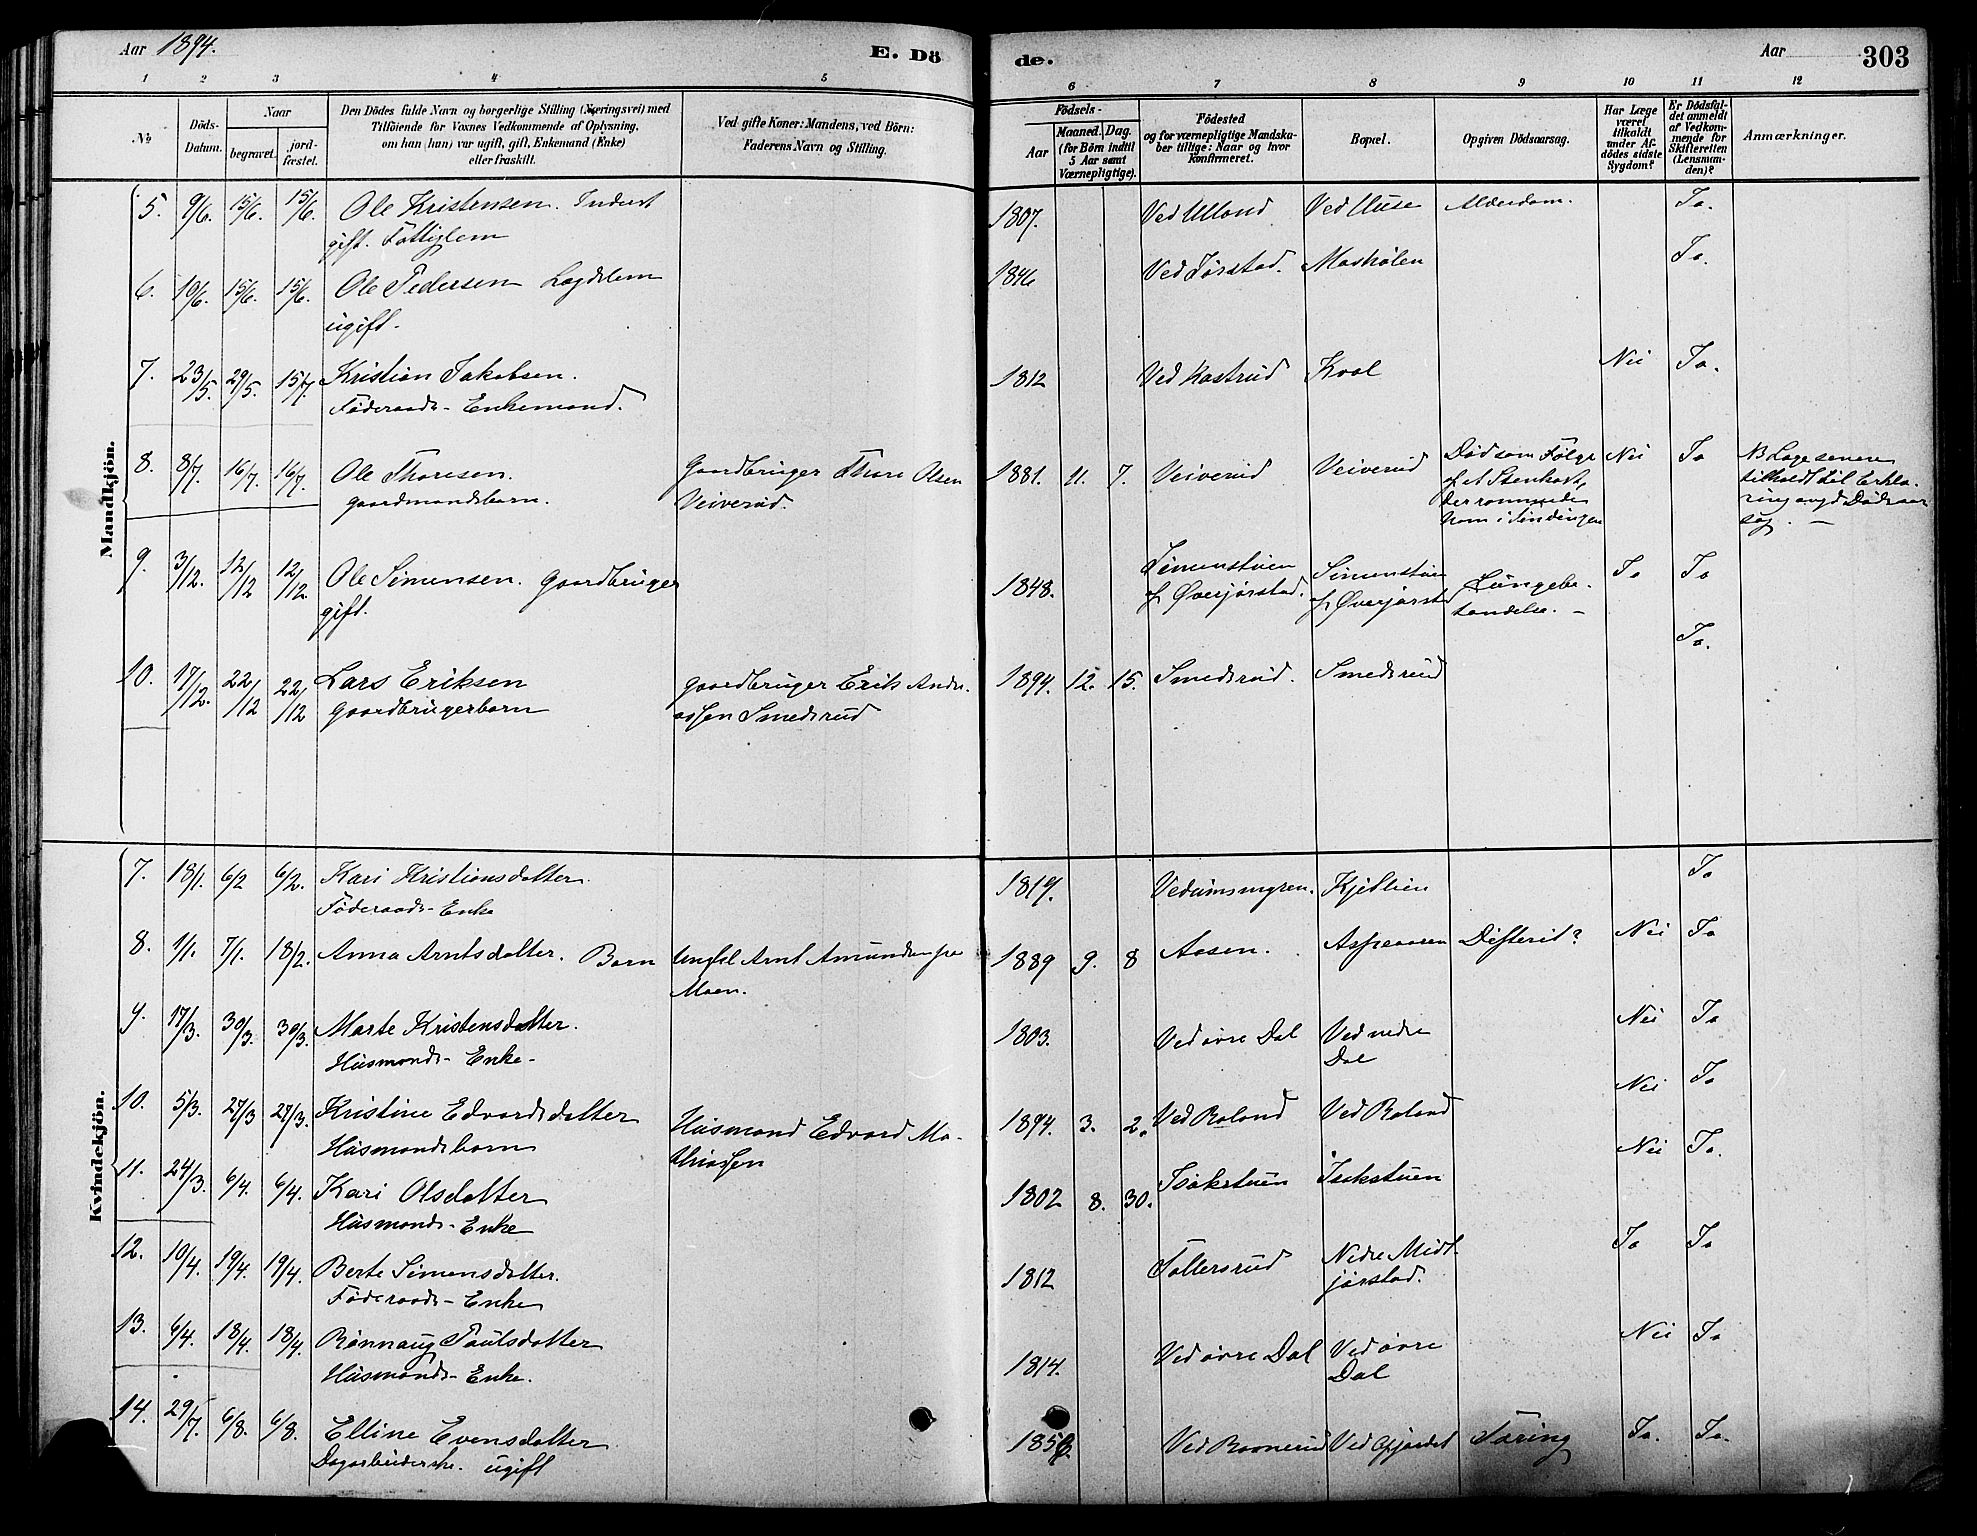 Aar 1894.
E. Dö
de.
Aar
303
1 2 3 4 5 6 7 8 9 10 11 12
No
Döds-
Datum.
Naar
begravet.
jord-
fæstet.
Den Dödes fulde Navn og borgerlige Stilling (Næringsvei) med
Tilföiende for Voxnes Vedkommende af Oplysning,
om han (hun) var ugift, gift, Enkemand (Enke)
eller fraskilt.
Ved gifte Koner: Mandens, ved Börn:
Faderens Navn og Stilling.
Födsels-
Aar
Maaned. Dag.
(for Börn indtil
5 Aar samt
Værnepligtige).
Födested
og for værnepligtige Mandska-
ber tillige: Naar og hvor
konfirmeret.
Bopæl.
Opgiven Dödsaarsag.
Har Læge
været
tilkaldt
under Af-
dödes sidste
Sygdom?
Er Dödsfal-
det anmeldt
af Vedkom-
mende for
Skifteretten
(Lensman-
den)?
Anmærkninger.
Mandkjön.
5. 9/6. 15/6. 15/6. Ole Kristensen. Inderst 1807. Ved Ulland Ved Huse Alderdom. Ja.
gift. Fattiglem
6. 10/6. 15/6. 15/6. Ole Pedersen Lægdslem 1846 Ved Jørstad. Mashølen Ja.
ugift.
7. 23/5. 29/5. 15/7. Kristian Jakobsen. 1812 Ved Kastrud Kval Nei Ja.
Føderaads- Enkemand.
8. 8/7. 16/7. 16/7. Ole Thoresen. Gaardbruger Thore Olsen 1881. 11. 7. Veiverud Veiverud Død som Følge Nei Ja NB Læge senere
gaardmandsbarn. Veiverud. af et Stenkast, tilkaldt til Erklæ-
der rammede ring angd. Dødsaar
ham i Tindingen sag. —
9. 3/12. 12/12 12/12. Ole Simensen. Gaardbruger 1848. Simenstuen Simenstuen Lungebe- Ja Ja
gift. af Øverjørstad. af Øverjørstd tændelse. —
10. 17/12. 22/12 22/12 Lars Eriksen Gaardbruger Erik Andre- 1894. 12. 15. Smedsrud. Smedsrud Ja.
Gaardbrugerbarn assen Smedsrud
Kvindekjön.
7. 18/1. 6/2 6/2. Kari Kristiansdatter 1819. Kjetlien Ja
Føderaads- Enke
8. 1/1. 7/1. 18/2. Anna Arntsdatter. Barn Ungkl Arnt Amundsen fra 1889 9. 8 Aasen. Difterit? Nei Ja
Moen.
9. 17/3. 30/3. 30/3. Marte Kristensdatter. 1803. Ved øvre Dal Ved nedre Nei Ja
Husmands- Enke- Dal
10. 5/3. 27/3 27/3. Kristine Edvardsdatter Husmand Edvard Ma- 1894. 3. 2. Ved Roland Ved Roland Nei Ja
Husmandsbarn thiassen
11. 24/3. 6/4. 6/4. Kari Olsdatter 1802 8. 30. Isakstuen Isakstuen Nei Ja.
Husmands- Enke
12. 10/4. 19/4. 19/4. Berte Simensdatter. 1812 Tollersrud Nedre Midt- Ja Ja
Føderaads- Enke jørstad.
13. 6/4. 18/4. 18/4. Rønnaug Paulsdatter 1814. Ved øvre Dal Ved øvre Nei Ja
Husmands- Enke. Dal
14. 29/7. 6/8. 6/8. Elline Evensdatter Tæring Ja. Ja.
Dagarbeiderske. ugift